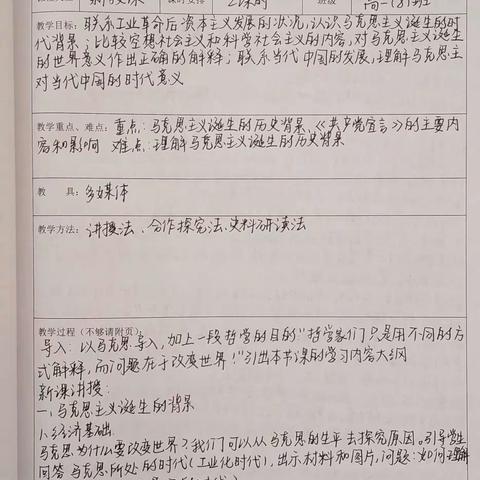 2课时
教学目标:联系工业革命后资本主义发展的状况,认识马克思主义诞生的时
代背景;比较空想社会主义和科学社会主义的内容,对马克思主义诞生
的世界意义作出正确的解释;联系当代中国的发展,理解马克思主
对当代中国的时代意义
教学重点、难点:重点:马克思主义诞生的历史背景、《共产党宣言》的主要内
容和影响 难点:理解马克思主义诞生的历史背景
教 具:多媒体
教学方法:讲授法、合作探究法、史料研读法
教学过程(不够请附页):
导入:以马克思导入,加上一段哲学的目的"哲学家们只是用不同的方
式解释,而问题在于改变世界!"引出本节课的学习内容大纲
新课讲授:
一、马克思主义诞生的背景
1、经济基础
马克思为什么要改变世界?我们可以从马克思的生平去探究原因。引导学生
回答马克思所处的时代(工业化时代),出示材料和图片,问题:如何理解